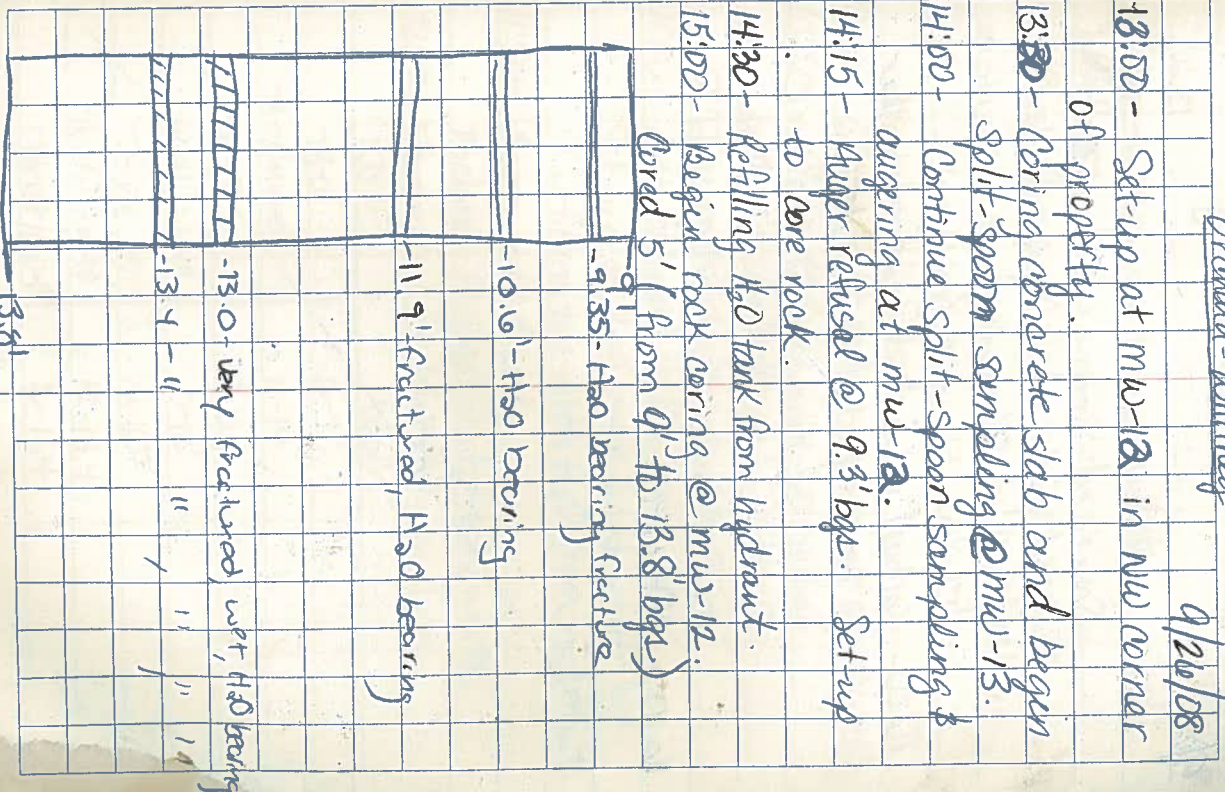 9/26/08
13:00 - Set-up at mw-12 in NW corner
of property.
13:30 - Coring concrete slab and begin
Split-Spoon sampling @ mw-13.
14:00 - Continue Split-Spoon sampling &
augering at mw-12.
14:15 - Auger refusal @ 9.3' bgs. Set-up
to core rock.
14:30 - Refilling H2O tank from hydrant.
15:00 - Begin rock coring @ mw-12.
Cored 5' (from 9' to 13.8' bgs)
9'
-9.35 - H2O bearing fracture
-10.6' - H2O bearing
-11.9' - fractured, H2O bearing
-13.0 - very fractured, wet, H2O bearing
-13.4 - " " , " , " "
13.8'